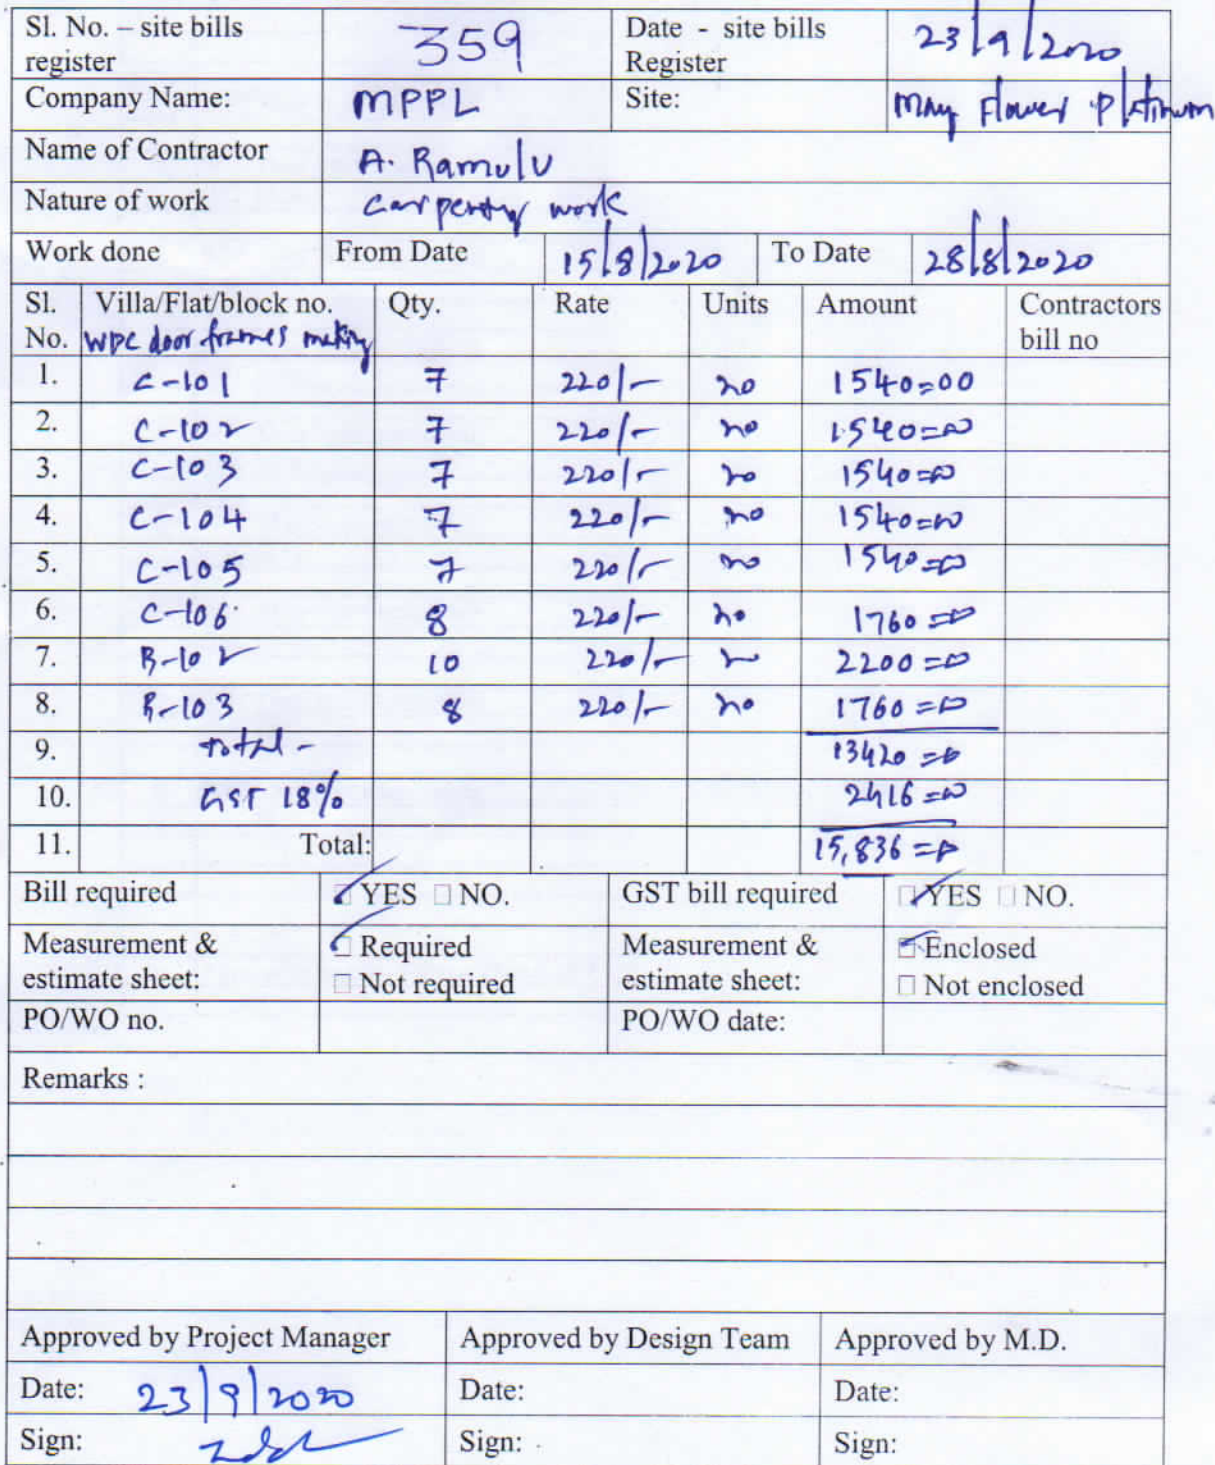 Sl. No. – site bills register 359 Date - site bills Register 23/9/2020
Company Name: MPPL Site: May Flower Platinum
Name of Contractor A. Ramulu
Nature of work Carpentry work
Work done From Date 15/8/2020 To Date 28/8/2020
Sl. No. Villa/Flat/block no. Qty. Rate Units Amount Contractors bill no
WPC door frames making
1. C-101 7 220/- no 1540=00
2. C-102 7 220/- no 1540=00
3. C-103 7 220/- no 1540=00
4. C-104 7 220/- no 1540=00
5. C-105 7 220/- no 1540=00
6. C-106 8 220/- no 1760=00
7. B-102 10 220/- no 2200=00
8. B-103 8 220/- no 1760=00
9. total - 13420=00
10. GST 18% 2416=00
11. Total: 15,836=00
Bill required YES NO. GST bill required YES NO.
Measurement & estimate sheet: Required Measurement & estimate sheet: Enclosed
Not required Not enclosed
PO/WO no. PO/WO date:
Remarks :
Approved by Project Manager Approved by Design Team Approved by M.D.
Date: 23/9/2020 Date: Date:
Sign: Sign: Sign: